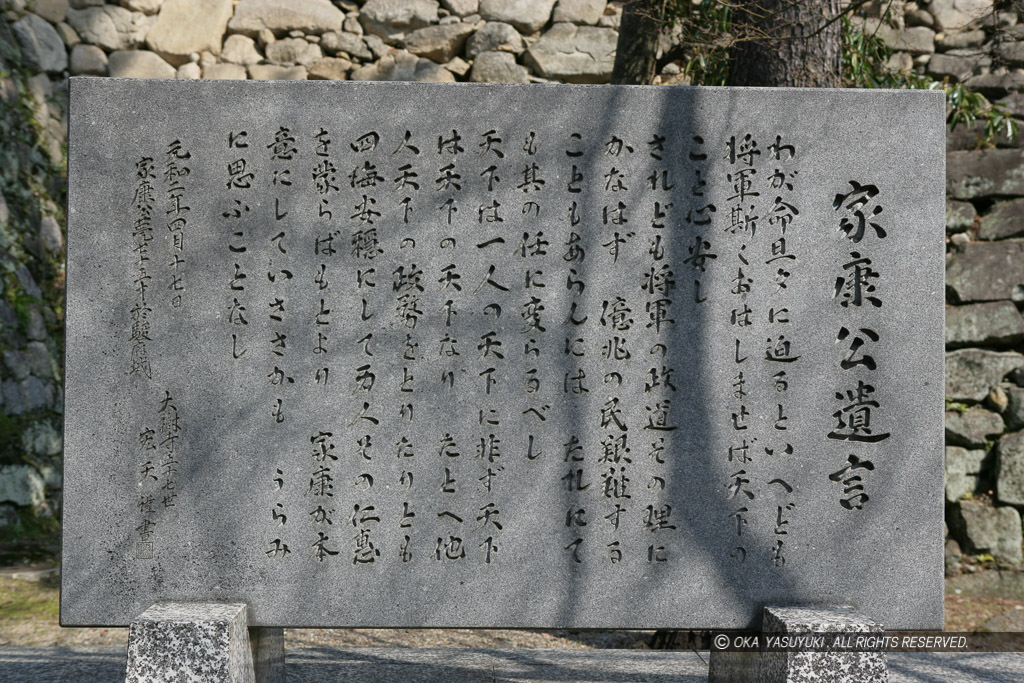 家康公遺言
わが命旦夕に迫るといへども
将軍斯くおはしませば天下の
こと心安し
されども将軍の政道その理に
かなはず 億兆の民艱難する
こともあらんには たれにて
も其の任に変らるべし
天下は一人の天下に非ず天下
は天下の天下なり たとへ他
人天下の政務をとりたりとも
四海安穏にして万人その仁恵
を蒙らばもとより 家康が本
意にしていささかも うらみ
に思ふことなし
元和二年四月十七日
家康公 七十五才 於駿府城
大樹寺 十七世
宏天 謹書
© OKA YASUYUKI. ALL RIGHTS RESERVED.